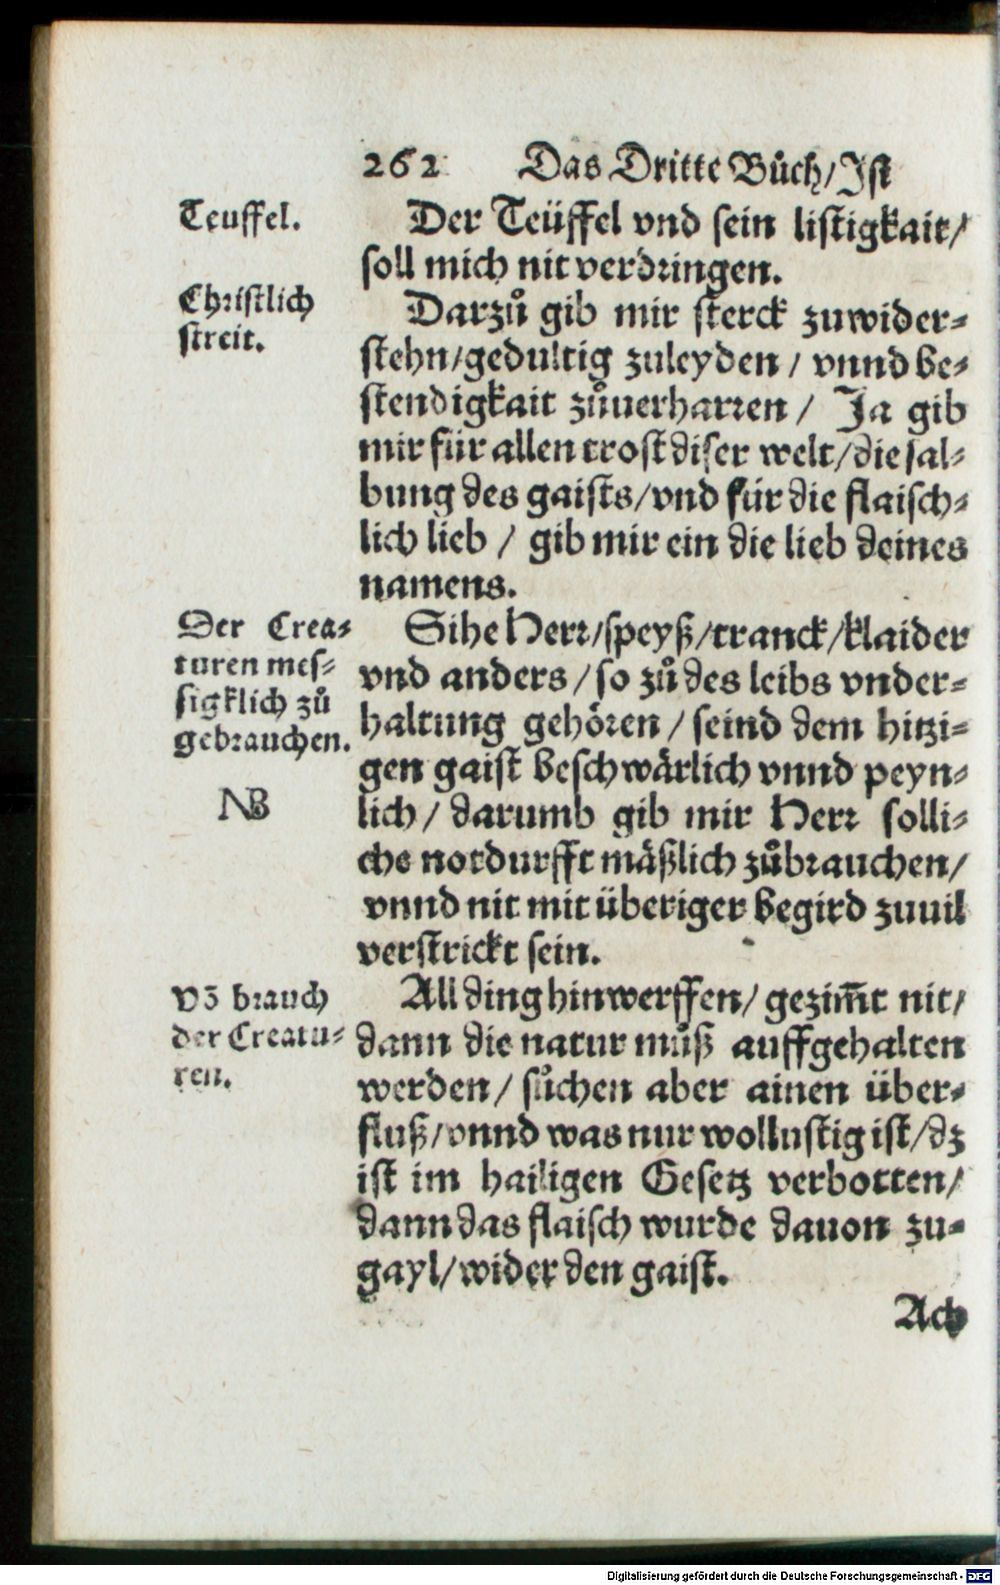 262 Das Dritte Bůch/Ist
Teuffel.
Der Teüffel vnd sein listigkait/
soll mich nit verdringen.
Christlich
streit.
Darzů gib mir sterck zuwider-
stehn/gedultig zuleyden / vnnd be-
stendigkait zůuerharren / Ja gib
mir für allen trost diser welt/die sal-
bung des gaists/vnd für die flaisch-
lich lieb / gib mir ein die lieb deines
namens.
Der Crea-
turen mes-
sigklich zů
gebrauchen.
NB
Sihe Herr/speyß/tranck/klaider
vnd anders/so zů des leibs vnder-
haltung gehören / seind dem hitzi-
gen gaist beschwärlich vnnd peyn-
lich / darumb gib mir Herr solli-
che notdurfft mäßlich zůbrauchen/
vnnd nit mit überiger begird zuuil
verstrickt sein.
Võ brauch
der Creatu-
ren.
All ding hinwerffen/ gezim̃t nit/
dann die natur můß auffgehalten
werden / sůchen aber ainen über-
fluß/vnnd was nur wollustig ist/dz
ist im hailigen Gesetz verbotten/
dann das flaisch wurde dauon zu-
gayl/wider den gaist.
Ach
Digitalisierung gefördert durch die Deutsche Forschungsgemeinschaft - DFG